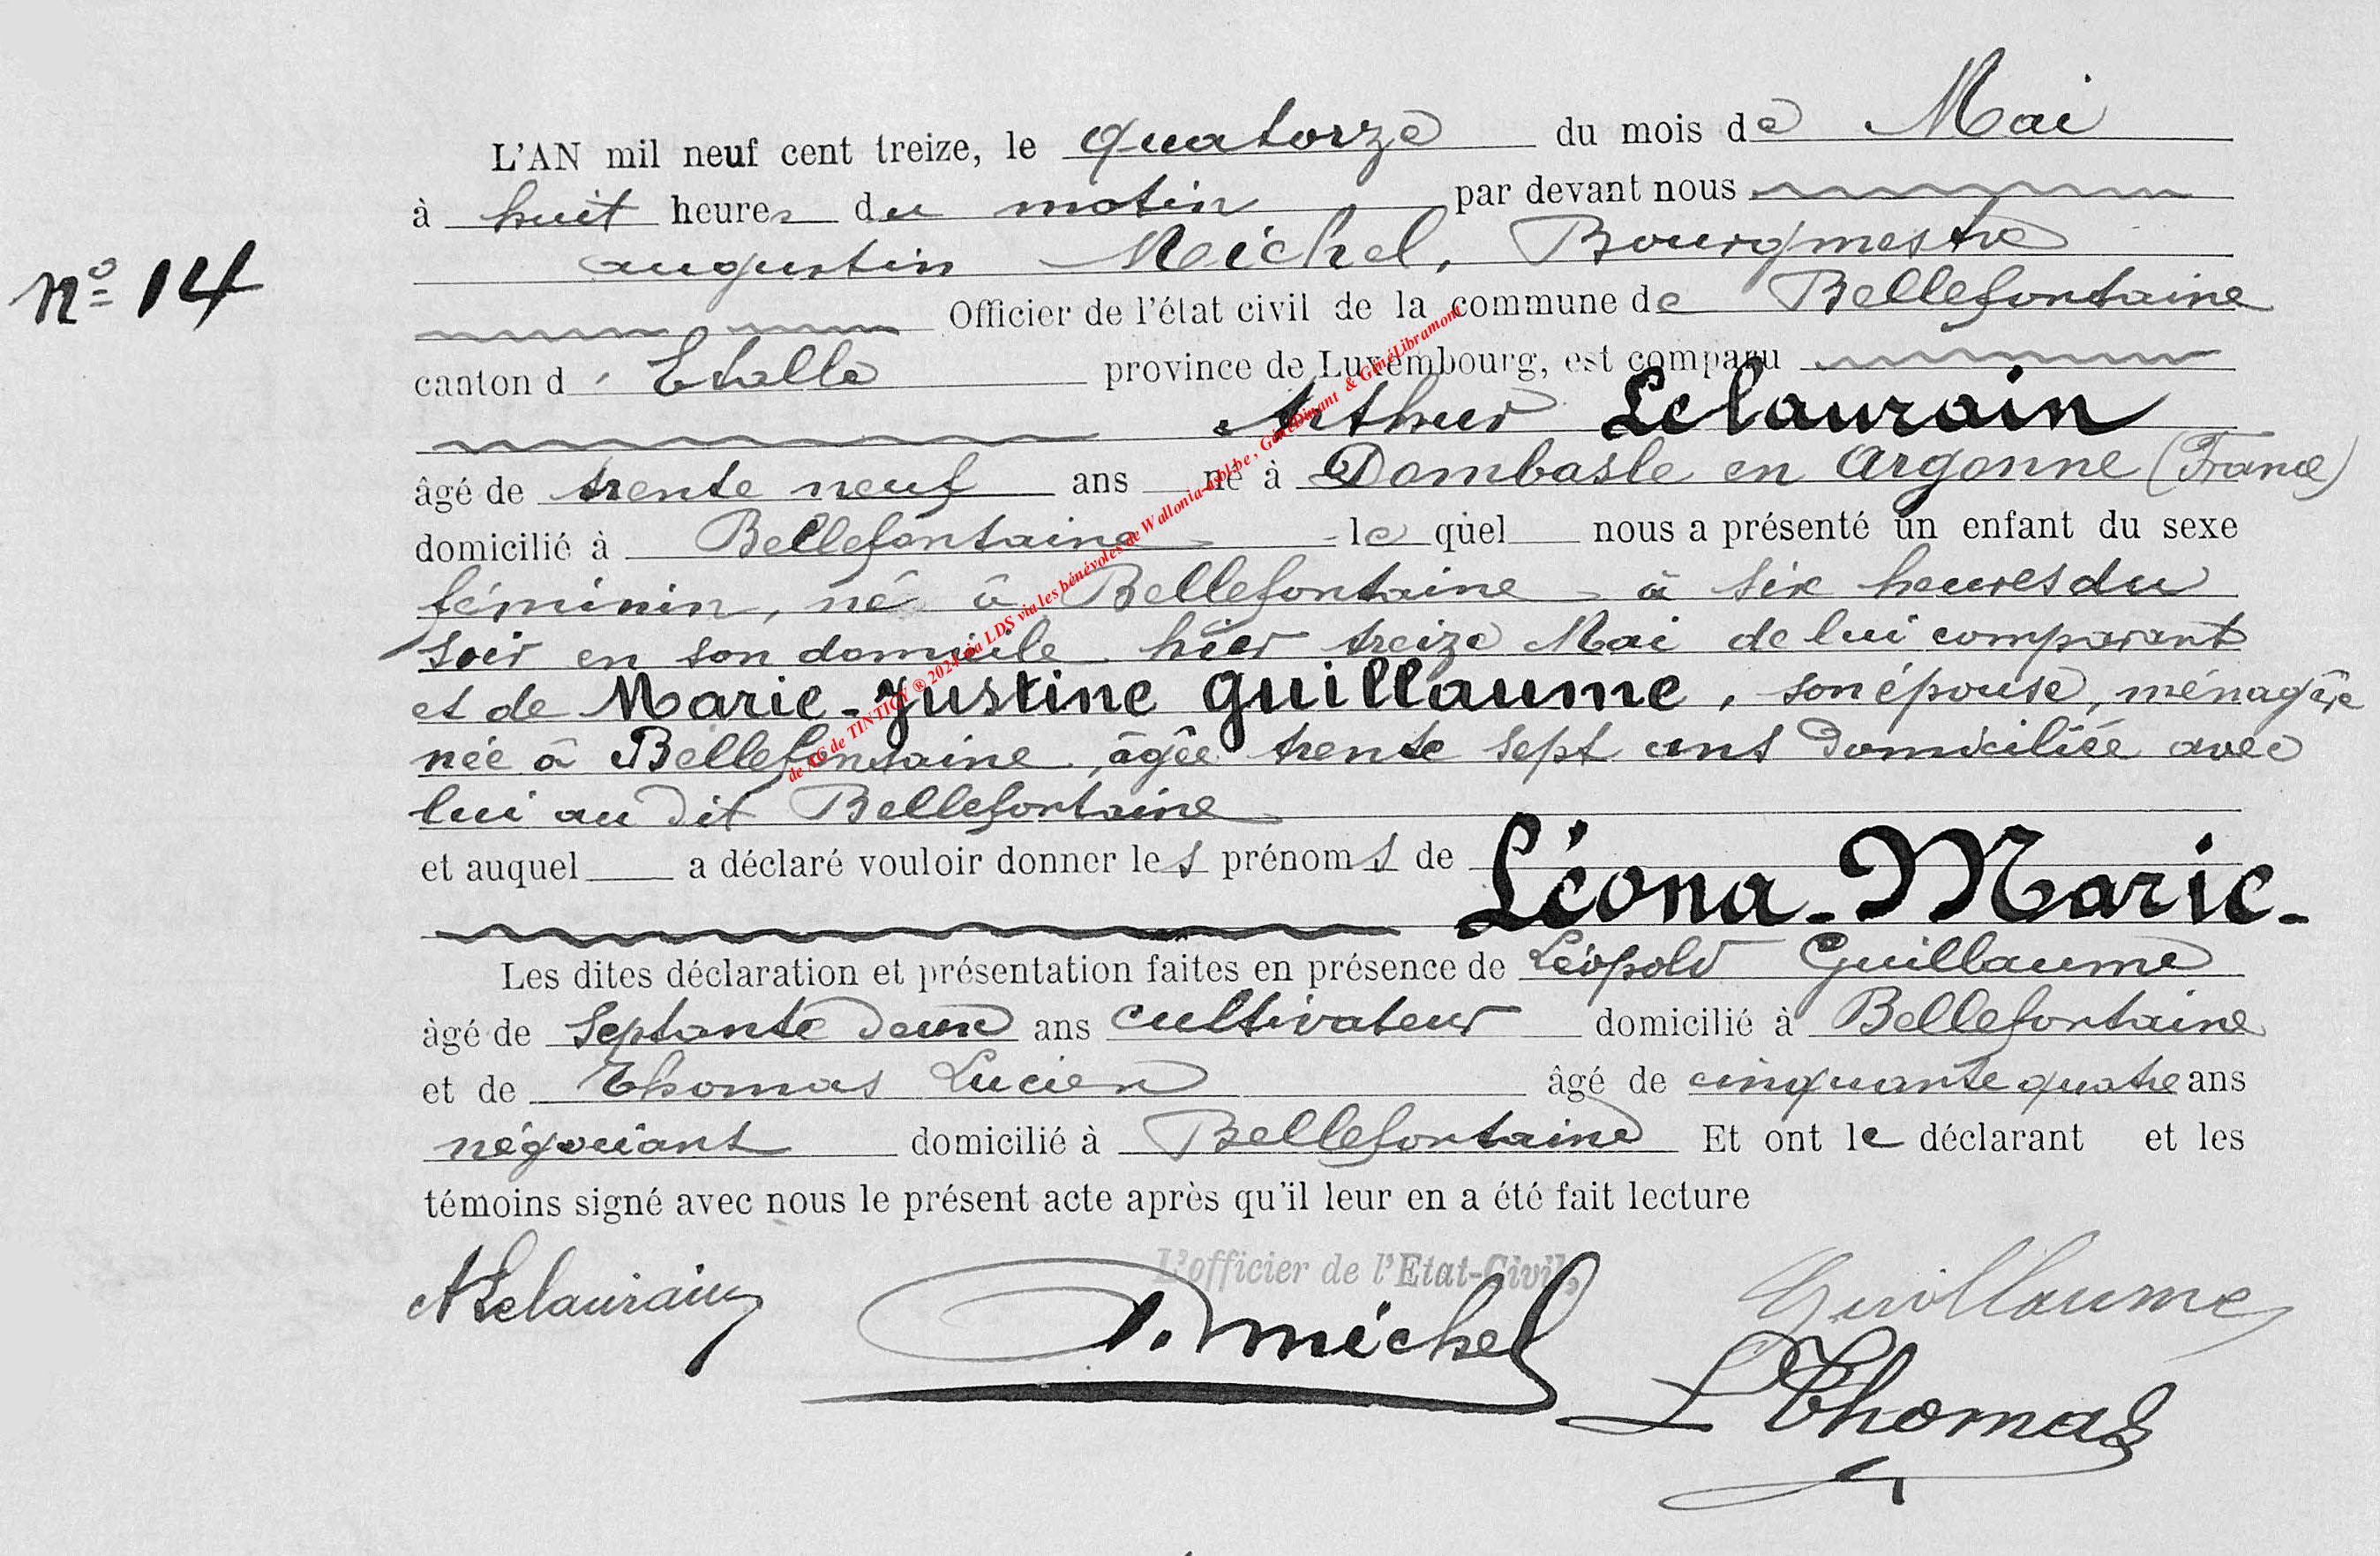 L'AN mil neuf cent treize, le quatorze du mois de Mai
à huit heures du matin par devant nous
Nº 14
augustin Michel, Bourgmestre
Officier de l'état civil de la commune de Bellefontaine
canton d'Etalle province de Luxembourg, est comparu
Arthur Lelaurain
âgé de trente neuf ans né à Dombasle en Argonne (France)
domicilié à Bellefontaine lequel nous a présenté un enfant du sexe
féminin, né à Bellefontaine à six heures du
soir en son domicile hier treize Mai de lui comparant
et de Marie-Justine Guillaume, son épouse, ménagère
née à Bellefontaine, âgée trente sept ans domiciliée avec
lui au dit Bellefontaine
et auquel a déclaré vouloir donner les prénoms de
Léona-Marie-
Les dites déclaration et présentation faites en présence de Léopold Guillaume
âgé de septante deux ans cultivateur domicilié à Bellefontaine
et de Thomas Lucien âgé de cinquante quatre ans
négociant domicilié à Bellefontaine Et ont le déclarant et les
témoins signé avec nous le présent acte après qu'il leur en a été fait lecture
L'officier de l'Etat-Civil,
A Lelaurain
A. Michel
Guillaume
L Thomas
de AC de TINTIGY ® 2024 via LDS via les bénévoles de Wallonia-asbl.be, GénéDinant & GénéLibramont